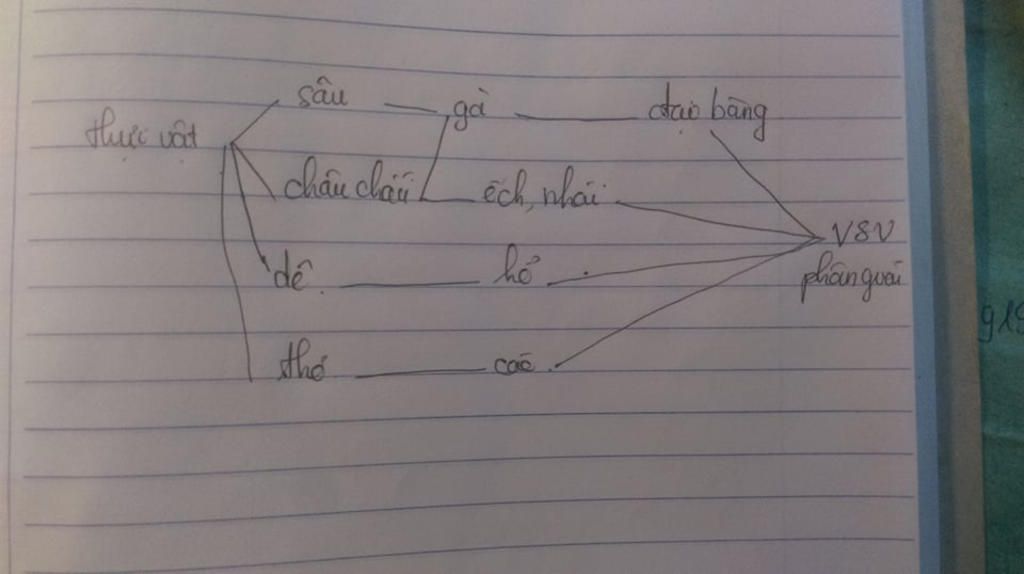 sâu gà đại bàng
thực vật
châu chấu ếch, nhái
VSV
dê hổ phân giải
thỏ cáo
919